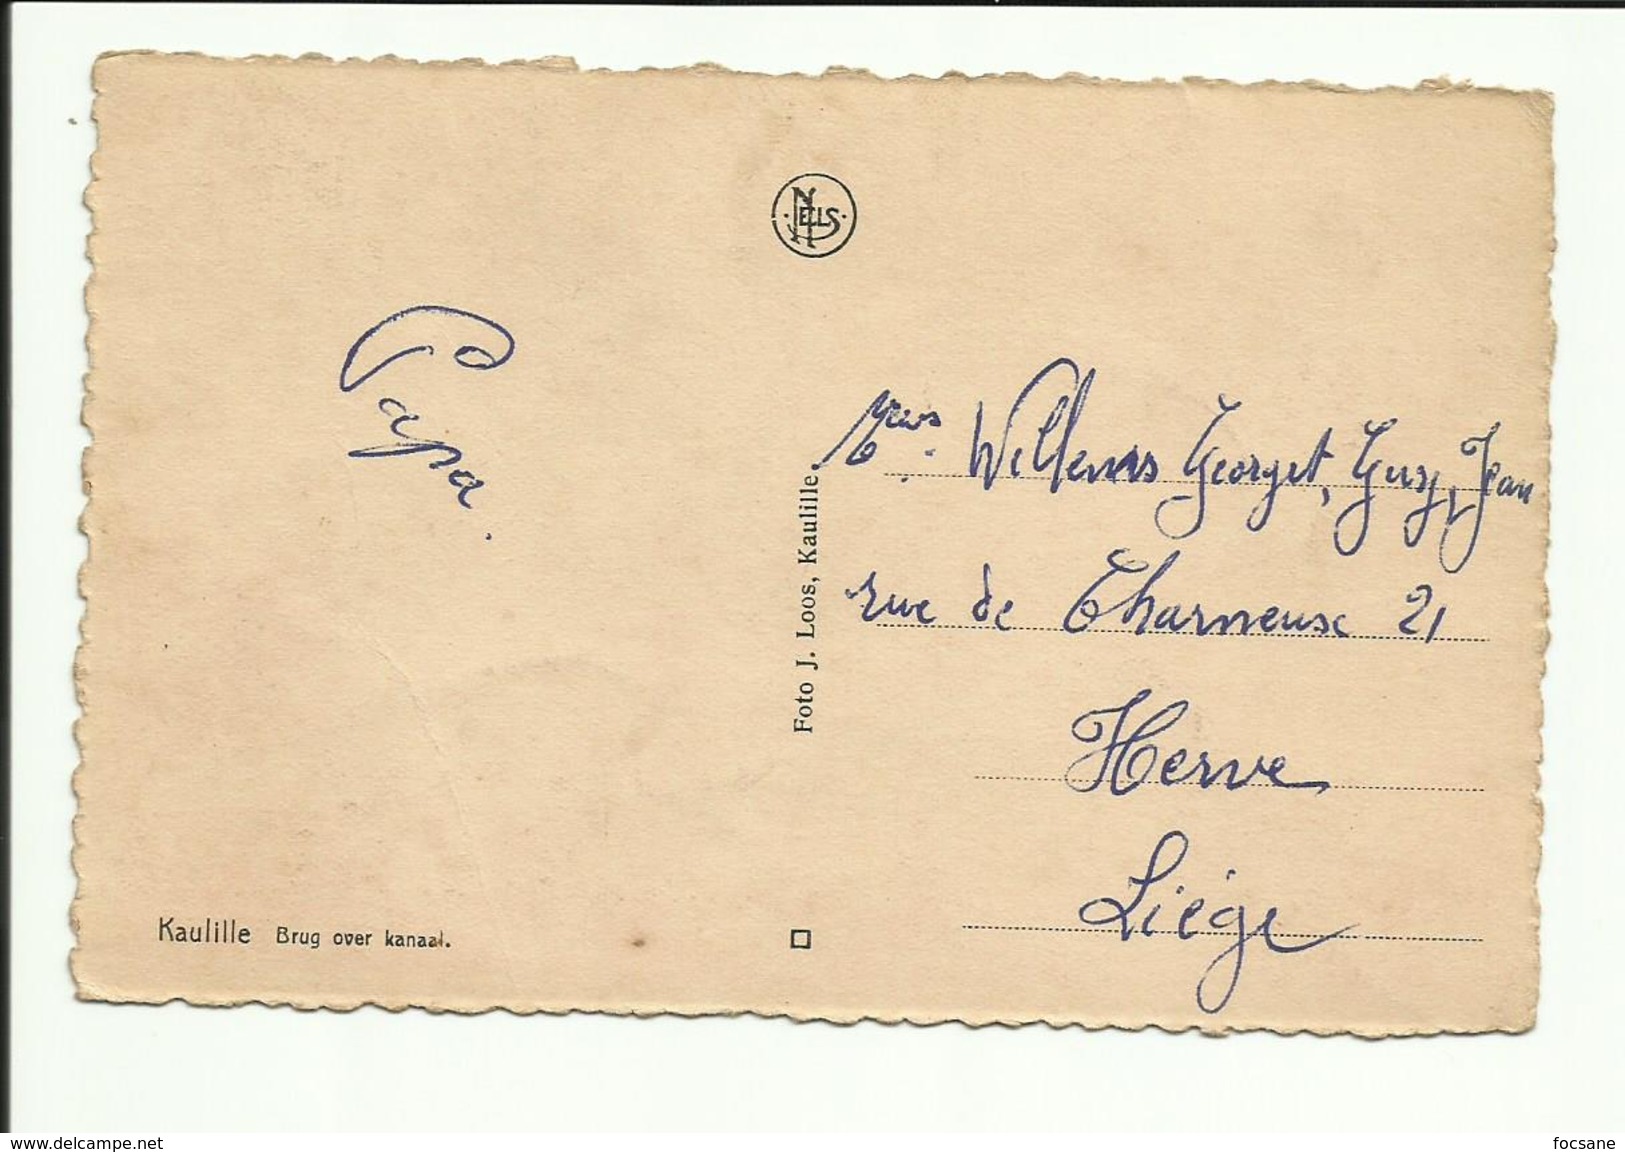 NELS
Papa.
Mrs. Willems Georget, Gusj, Jean
rue de Charneuse 21
Herve
Liége
Foto J. Loos, Kaulille.
Kaulille Brug over kanaal.
www.delcampe.net
focsane